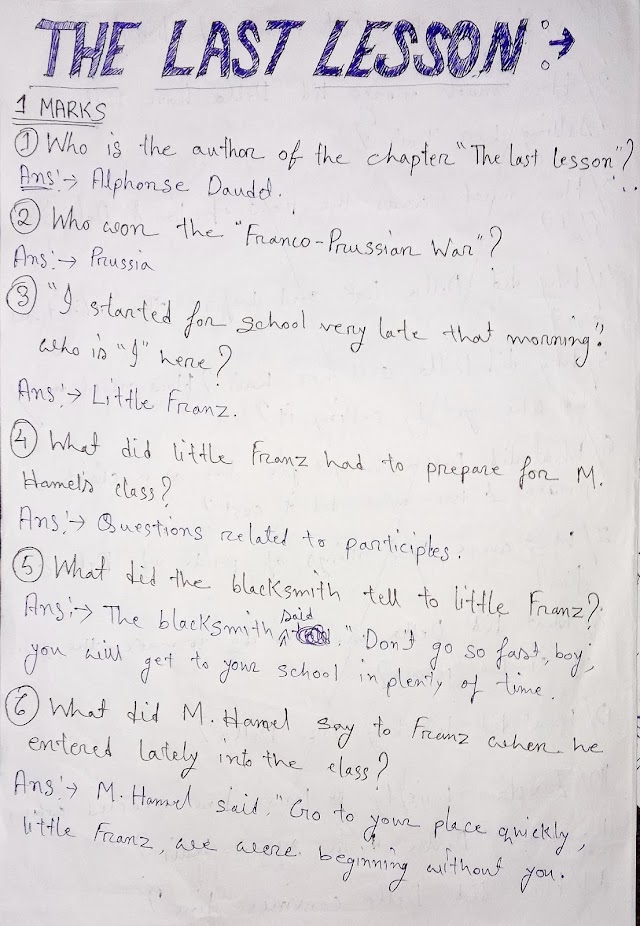 THE LAST LESSON :→
1 MARKS
① Who is the author of the chapter "The last lesson"?
Ans:→ Alphonse Daudd.
② Who won the "Franco-Prussian War"?
Ans:→ Prussia
③ "I started for school very late that morning".
who is "I" here?
Ans:→ Little Franz.
④ What did little Franz had to prepare for M.
Hamel's class?
Ans:→ Questions related to participles.
⑤ What did the blacksmith tell to little Franz?
Ans:→ The blacksmith said, "Don't go so fast, boy;
you will get to your school in plenty of time.
⑥ What did M. Hamel say to Franz when he
entered lately into the class?
Ans:→ M. Hamel said, "Go to your place quickly,
little Franz, we were beginning without you.